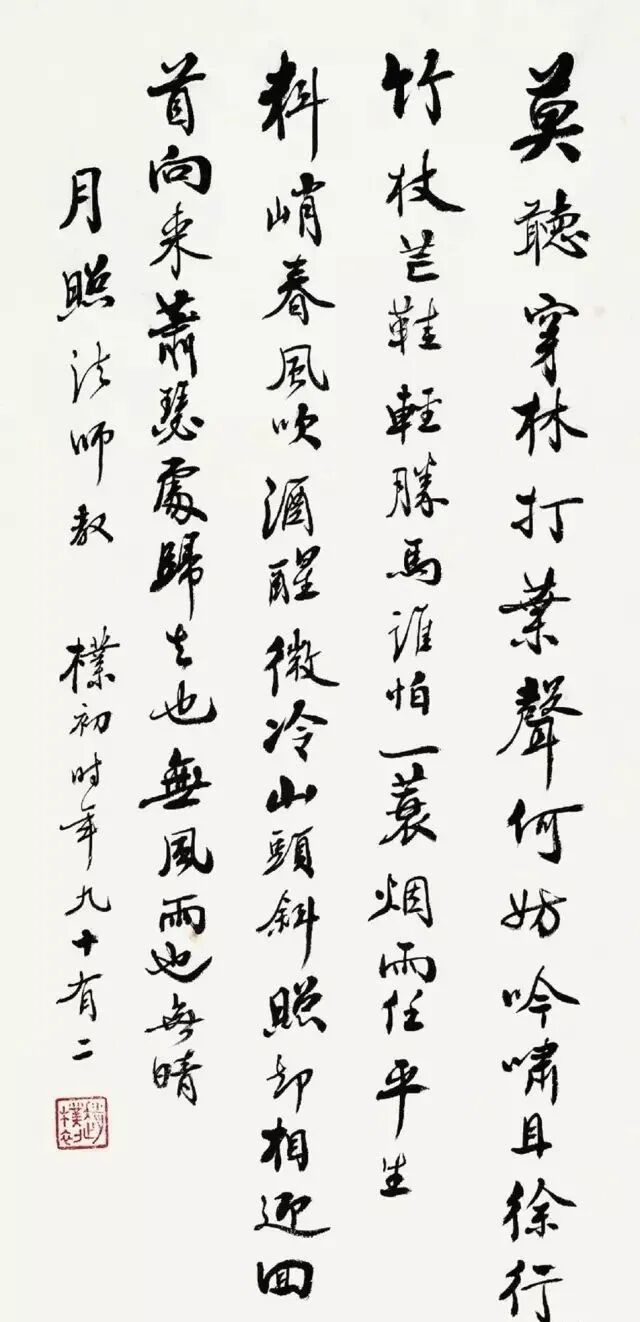 莫聽穿林打葉聲何妨吟嘯且徐行
竹杖芒鞋輕勝馬誰怕一蓑烟雨任平生
料峭春風吹酒醒微冷山頭斜照却相迎回
首向来蕭瑟處歸去也無風雨也無晴
月照法師教 樸初时年九十有二
趙樸初